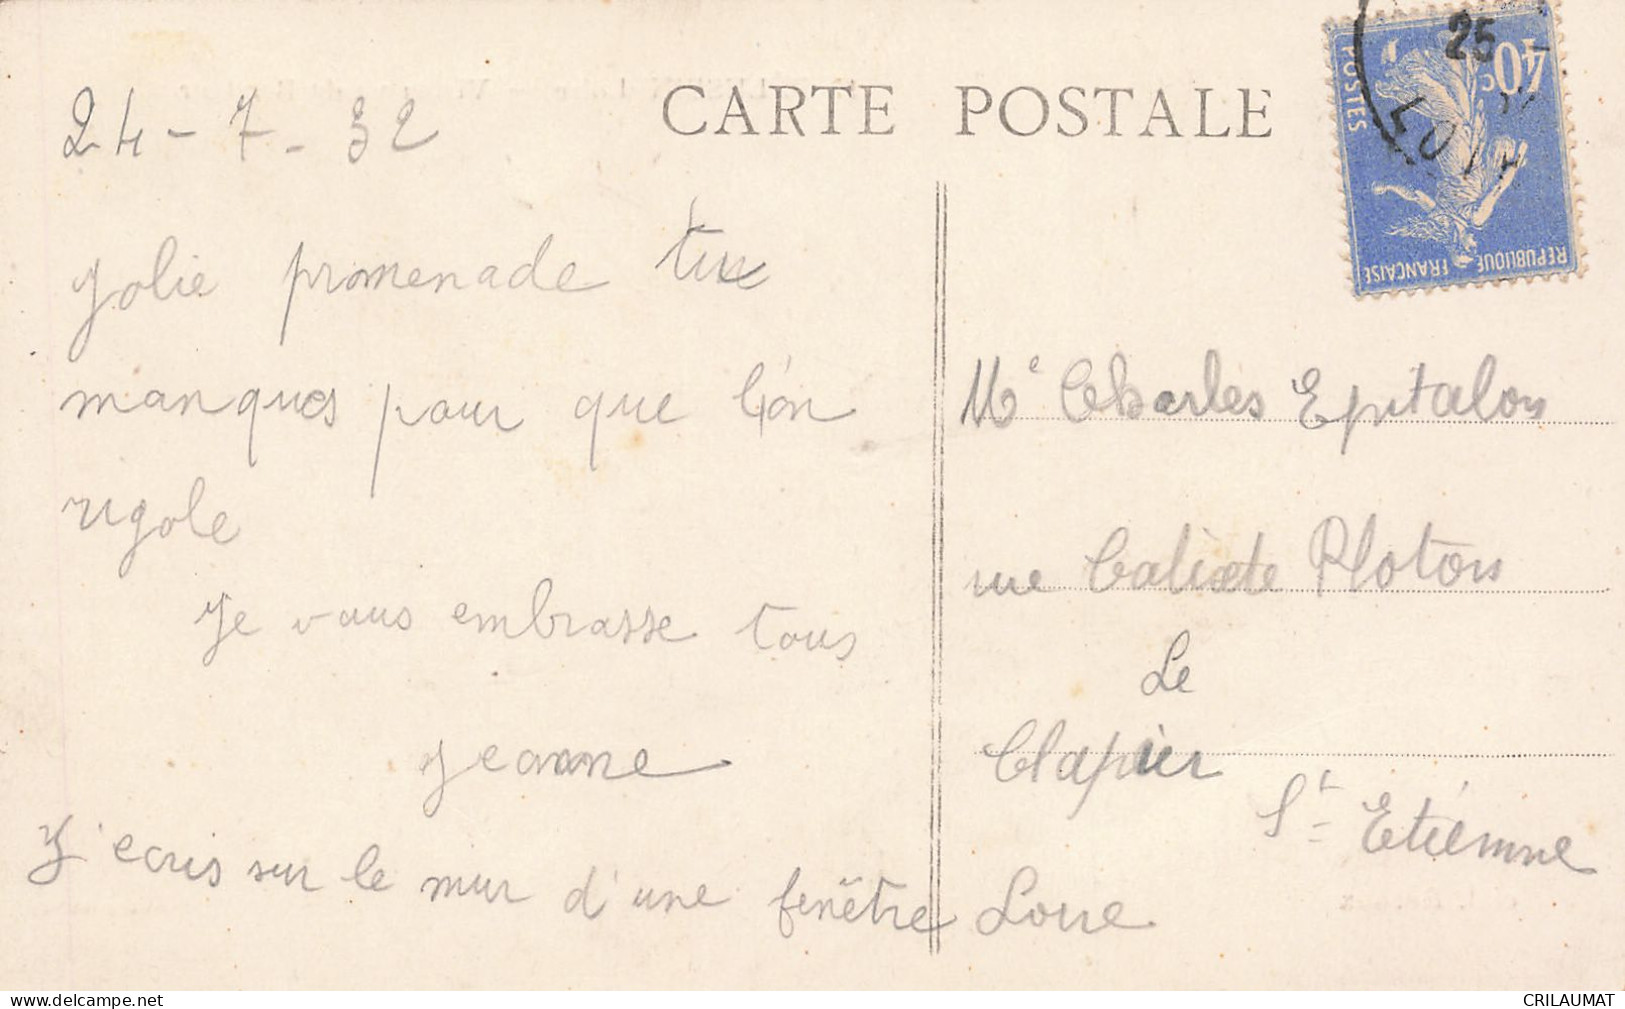 CARTE POSTALE
24-7-32
Jolie promenade tu
manques pour que l'on
rigole
Je vous embrasse tous
Jeanne
J'ecris sur le mur d'une fenêtre
Me Charles Epitalon
rue Calixte Ploton
Le
Clapier
St Etiémne
Loire
40c
POSTES
REPUBLIQUE FRANÇAISE
25
CRILAUMAT